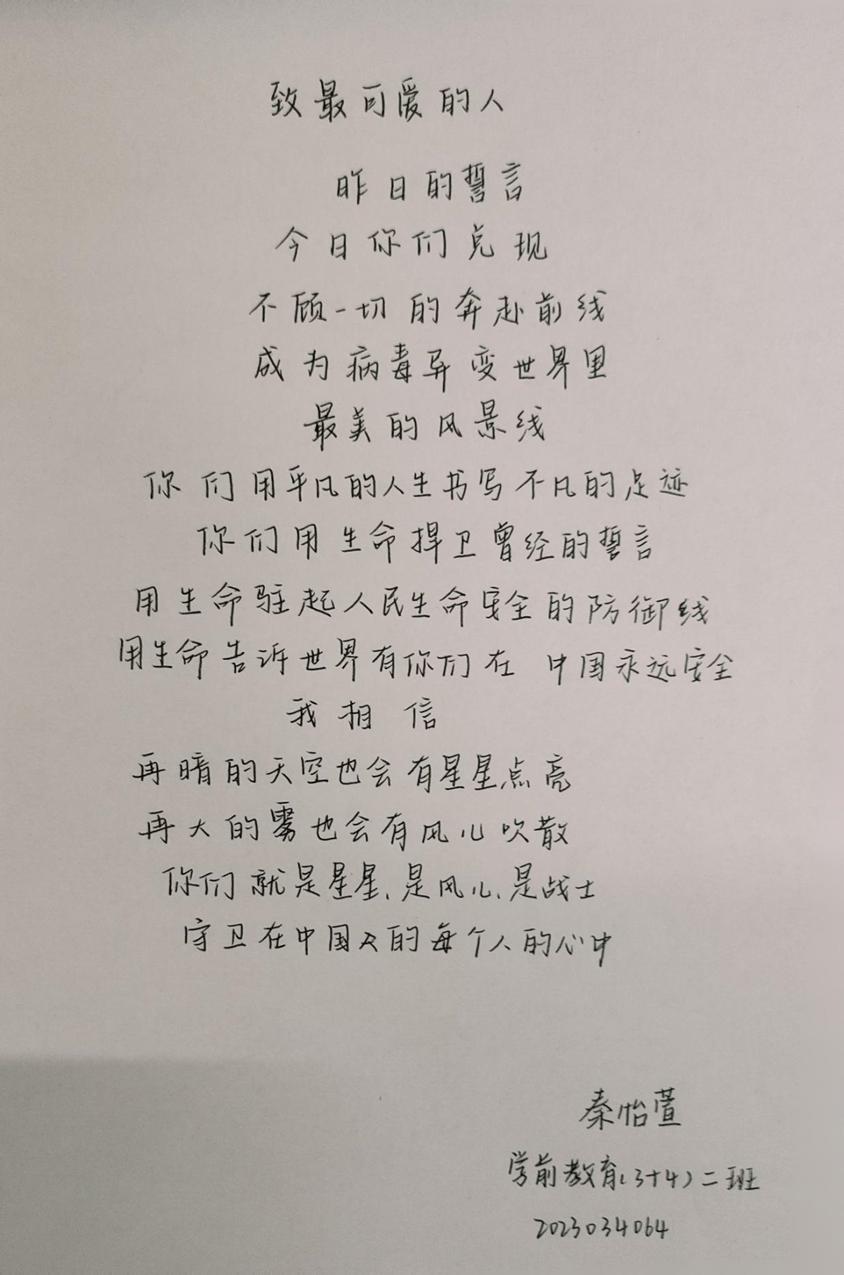 致最可爱的人
昨日的誓言
今日你们兑现
不顾一切的奔赴前线
成为病毒异变世界里
最美的风景线
你们用平凡的人生书写不凡的足迹
你们用生命捍卫曾经的誓言
用生命驻起人民生命安全的防御线
用生命告诉世界有你们在 中国永远安全
我相信
再暗的天空也会有星星点亮
再大的雾也会有风儿吹散
你们就是星星、是风儿、是战士
守卫在中国人的每个人的心中
秦怡萱
学前教育(3+4)二班
2023034064